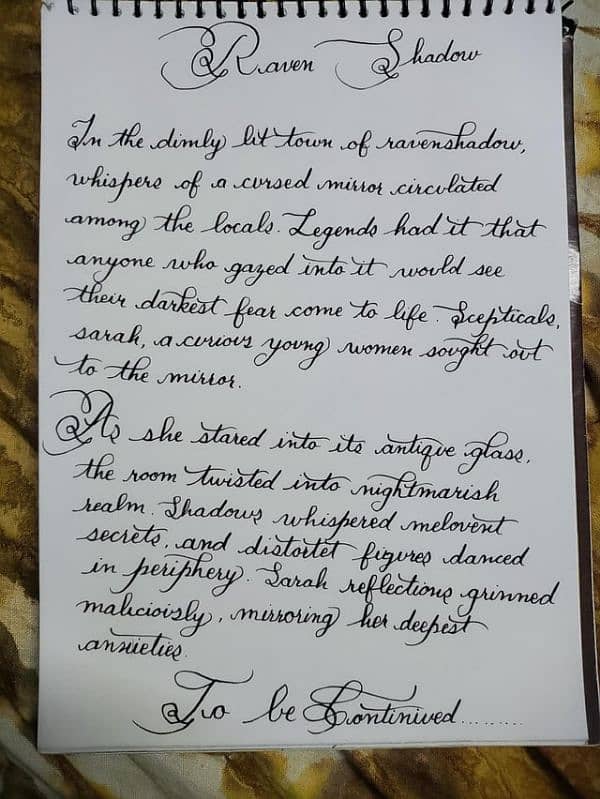 Raven Shadow
In the dimly lit town of ravenshadow,
whispers of a cursed mirror circulated
among the locals. Legends had it that
anyone who gazed into it would see
their darkest fear come to life. Scepticals,
sarah, a curious young women sought out
to the mirror.
As she stared into its antique glass,
the room twisted into nightmarish
realm. Shadows whispered melovent
secrets, and distortet figures danced
in periphery. Sarah reflections grinned
maliciously, mirroring her deepest
anxieties.
To be Continived.........